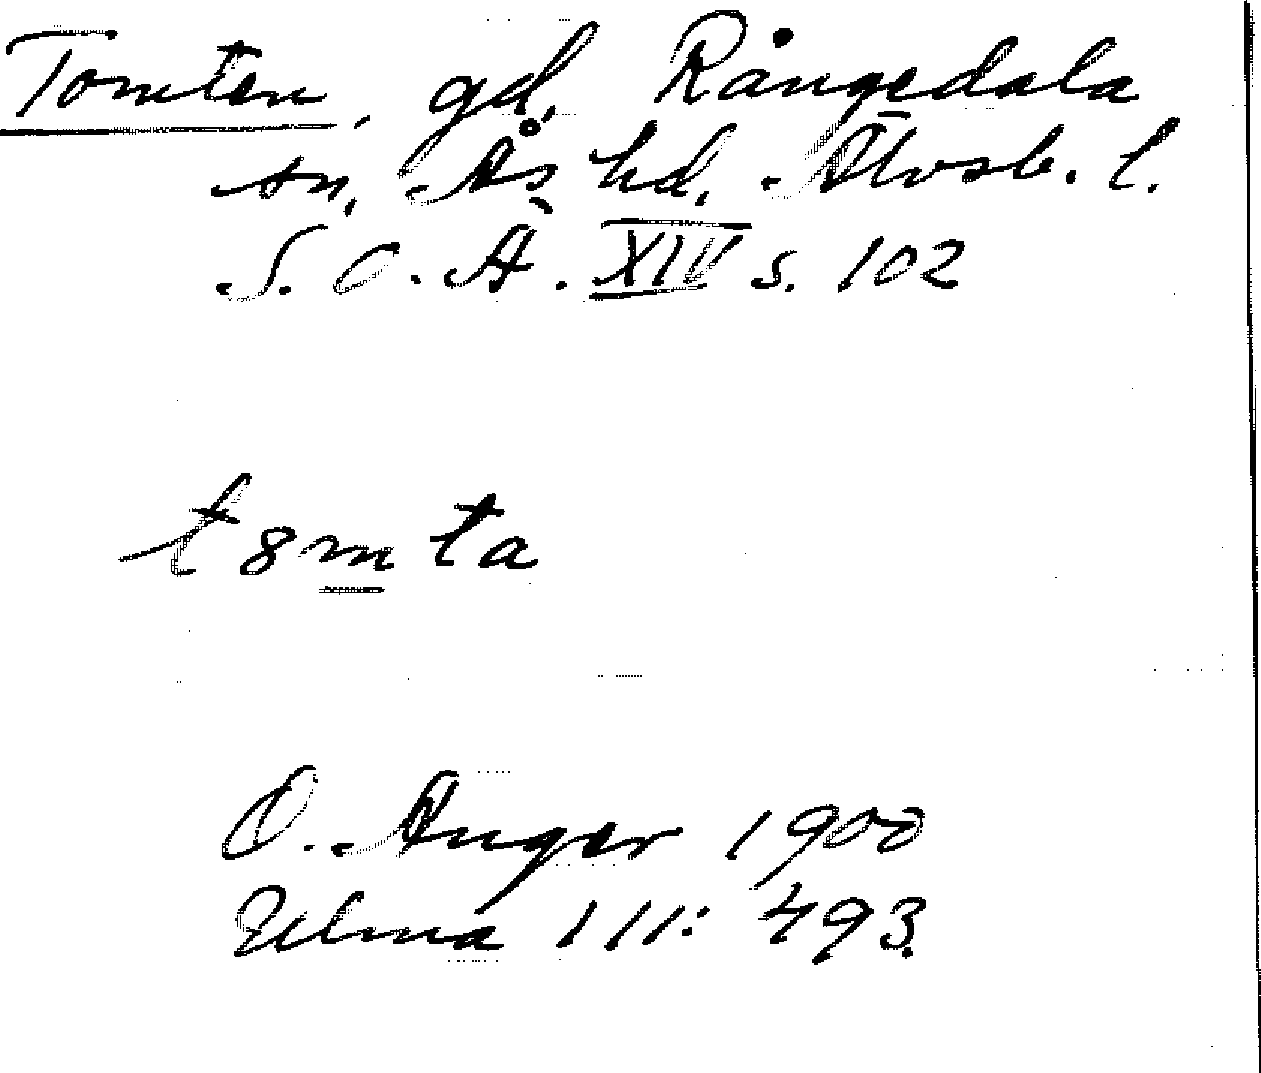 Tomten, gd, Rångedala
sn, Ås hd, Älvsb. l.
S. O. Ä. XIV s. 102
t8mta
O. Anger 1900
Ulma 111: 493.